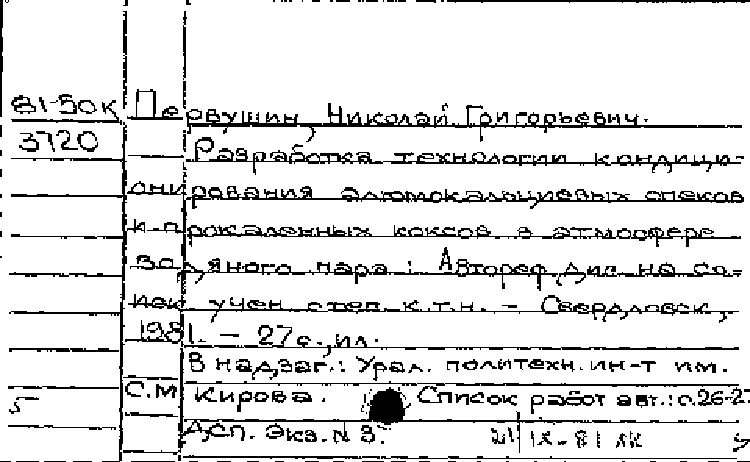 81-50к Первушин, Николай Григорьевич.
3720 Разработка технологии кондици-
онирования алюмокальциевых спеков
и прокаленных коксов в атмосфере
водяного пара : Автореф. дис. на со-
иск. учен. степ. к.т.н. - Свердловск,
1981. - 27 с., ил.
В надзаг.: Урал. политехн. ин-т им.
5 С.М. Кирова. Список работ авт.: с.26-27
Дсп. Экз. N 3. IX-81 ЛК